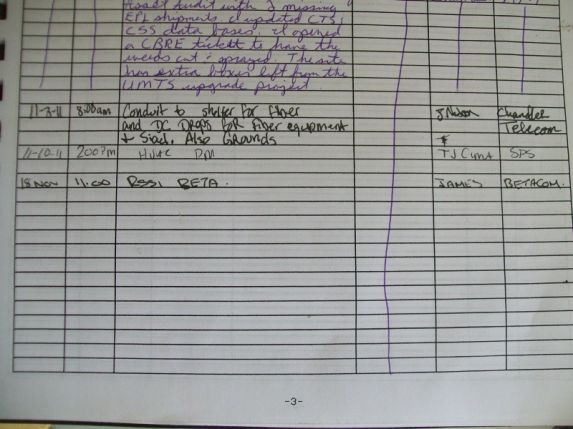 Asset Audit with 2 missing
EPL shipments. I updated CTS,
CSS data bases. I opened
a CBRE ticket to have the
weeds cut & sprayed. The site
has extra boxes left from the
UMTS upgrade project
11-3-11 8:00am Conduit to shelter for Fiber J Nelson Chandler
and DC Drops for Fiber equipment Telecom
+ Siad. Also Grounds
11-10-11 2:00pm HVAC PM TJ SPS
18 Nov 11.00 RSSI BETA. JAMES BETACOM.
-3-